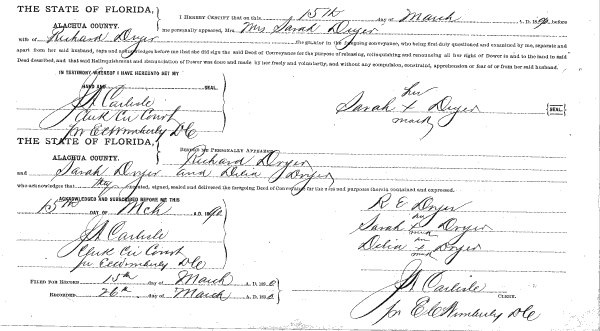 THE STATE OF FLORIDA,
ALACHUA COUNTY.
I HEREBY CERTIFY that on this 15th day of March A. D. 1890, before
me personally appeared, Mrs Sarah Dryer
wife of Richard Dryer the grantor in the foregoing conveyance, who being first duly questioned and examined by me, separate and
apart from her said husband, says and acknowledges before me that she did sign the said Deed of Conveyance for the purpose of releasing, relinquishing and renouncing all her right of Dower in and to the land in said
Deed described, and that said Relinquishment and Renunciation of Dower was done and made by her freely and voluntarily, and without any compulsion, constraint, apprehension or fear of or from her said husband.
IN TESTIMONY WHEREOF I HAVE HEREUNTO SET MY
HAND AND SEAL.
J A Carlisle
Clerk Cir Court
pr E C Wimberly D C
her
Sarah x Dryer {SEAL.}
mark
THE STATE OF FLORIDA,
ALACHUA COUNTY.
BEFORE ME PERSONALLY APPEARED Richard Dryer
and Sarah Dryer and Delia Dryer
who acknowledges that they executed, signed, sealed and delivered the foregoing Deed of Conveyance for the uses and purposes therein contained and expressed.
ACKNOWLEDGED AND SUBSCRIBED BEFORE ME THIS
15th DAY OF Mch A. D. 1890.
J A Carlisle
Clerk Cir Court
pr E C Wimberly D C
R E Dryer
her
Sarah x Dryer
mark
her
Delia x Dryer
mark
FILED FOR RECORD 15th day of March A. D. 1890
RECORDED 26th day of March A. D. 1890
J A Carlisle
CLERK.
pr E C Wimberly D C